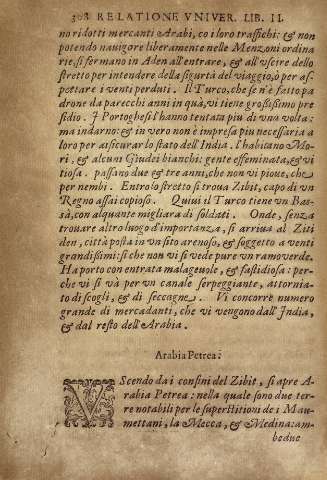 308 RELATIONE VNIVER. LIB. II.
no ridotti mercanti Arabi, co i loro traffichi: & non
potendo nauigare liberamente nelle Menzoni ordina
rie, si fermano in Aden all'entrare, & all'vscire dello
stretto per intendere della sigurtà del viaggio, ò per as-
pettare i venti perduti. Il Turco, che se n'è fatto pa
drone da parecchi anni in quà, vi tiene grossissimo pre
sidio. I Portoghesi l'hanno tentata piu di una volta:
ma indarno: & in vero non è impresa piu necessaria a
loro per assicurar lo stato dell'India. l'habitano Mo-
ri, & alcuni Giudei bianchi: gente effeminata, & vi
tiosa. passano due & tre anni, che non vi pioue, che
per nembi. Entro lo stretto si troua Zibit, capo di vn
Regno assai copioso. Quiui il Turco tiene vn Bas-
sà, con alquante migliara di soldati. Onde, senza
trouare altro luogo d'importanza, si arriua al Ziti
den, città posta in vn sito arenoso, & soggetto a venti
grandissimi: sì che non vi si vede pure vn ramo verde.
Ha porto con entrata malageuole, & fastidiosa: per-
che vi si và per vn canale serpeggiante, attornia-
to di scogli, & di seccagne. Vi concorre numero
grande di mercadanti, che vi vengono dall'India,
& dal resto dell'Arabia.
Arabia Petrea.
VScendo da i confini del Zibit, si apre A-
rabia Petrea: nella quale sono due ter-
re notabili per le superstitioni de i Mau-
mettani, la Mecca, & Medina: am-
bedue